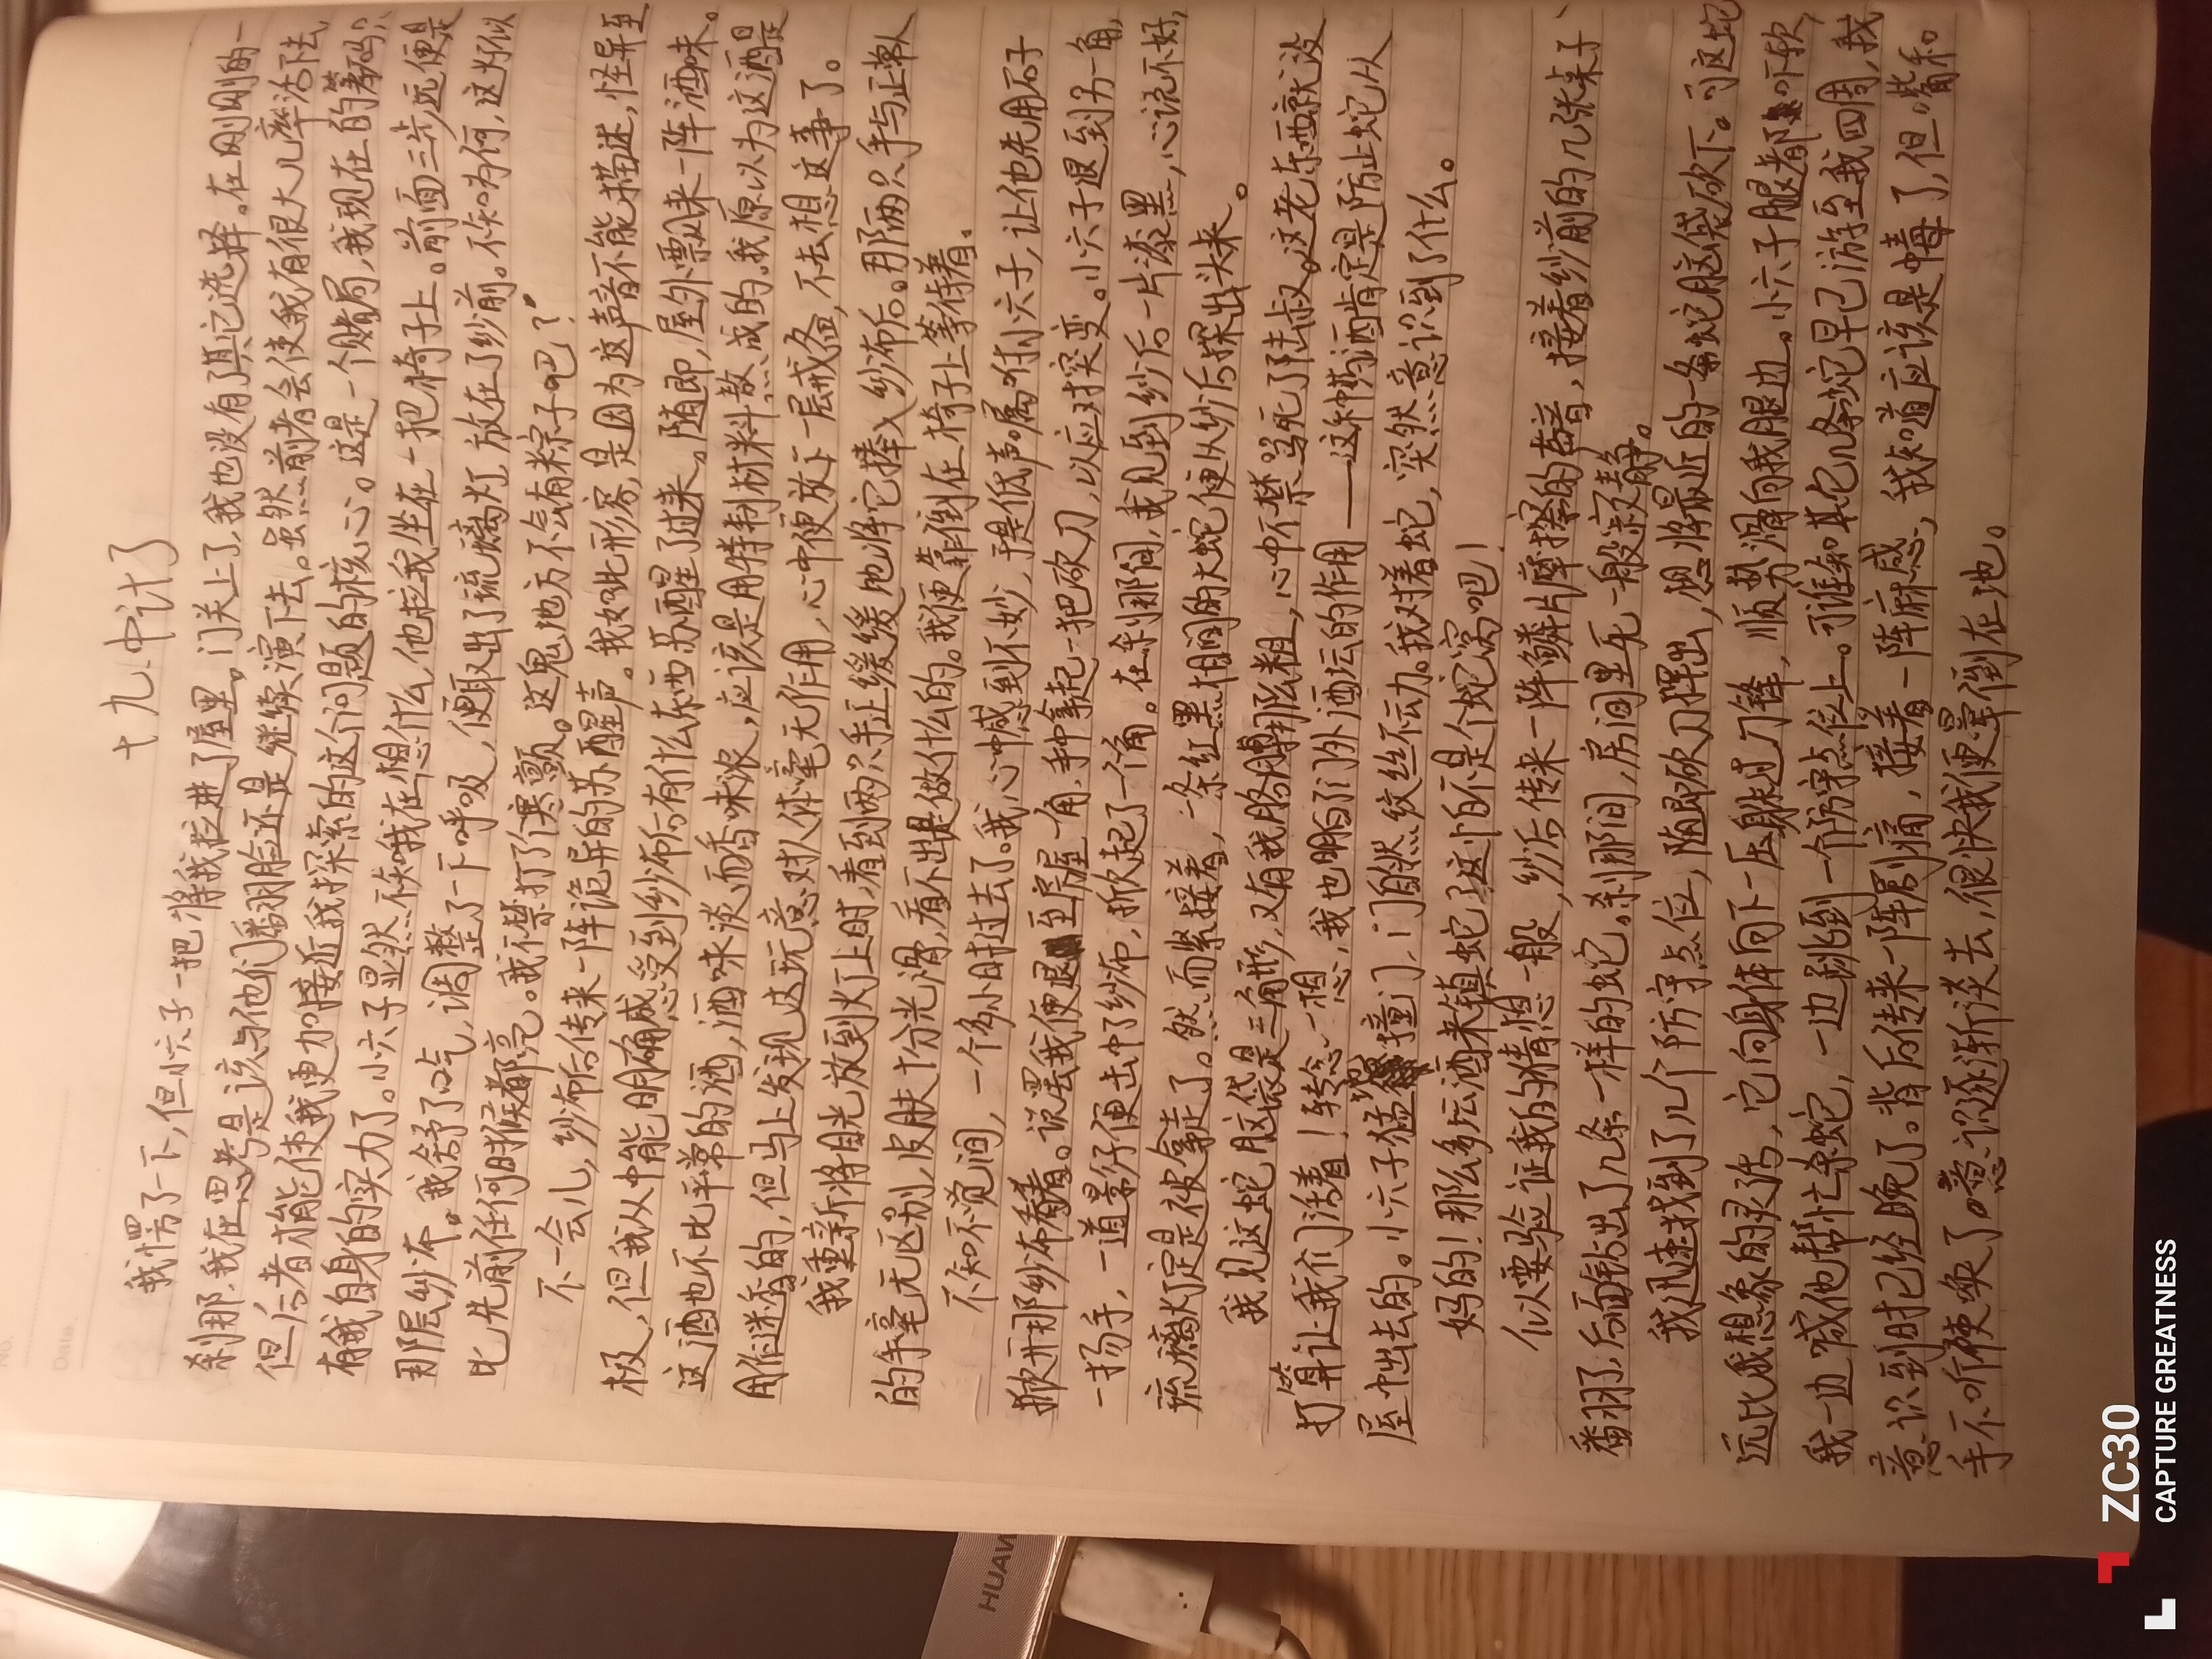 十九.中计了
我愣了一下,但小六子一把将我拉进了屋里。门关上了,我也没有了其它选择。在刚刚的一
刹那,我在思考是该与他们翻脸还是继续演下去。虽然前者会使我有很大几率活下去,
但后者才能使我更加接近我探索的这个问题的核心。这是一个赌局,我现在的筹码只
有我自身的实力了。小六子显然不知我在想什么,他拉我坐在一把椅子上。前面三步远便是
那层纱布。我舒了口气,调整了一下呼吸,便取出了琉璃灯,放在了纱前。不知为何,这灯似
比先前任何时候都亮。我不禁打了个寒颤。这鬼地方不会有粽子吧?
不一会儿,纱布后传来一阵诡异的苏醒声。我如此形容,是因为这声音不能描述,怪异至
极,但我从中能明确感受到纱布后有什么东西苏醒了过来。随即,屋外飘来一阵酒味。
这酒也不比平常的酒,酒味淡而香味浓,应该是用特制材料散成的。我原以为这酒是
用作迷香的,但马上发现这玩意对人体毫无作用,心中便放下一层戒备,不去想这事了。
我重新将目光放到灯上时,看到两只手正缓缓地将它捧入纱布后。那两只手与正常人
的手毫无区别,皮肤十分光滑,看不出是做什么的。我便靠倒在椅子上等候着。
不知不觉间,一个多小时过去了。我心中感到不妙,于是低声嘱咐小六子,让他先用石子
掀开那纱布看看。说罢我便退至房屋一角,手中拿起一把砍刀,以应对突变。小六子退到另一角,
一扬手,一道影仔便击中了纱布,掀起了一个角。在刹那间,我见到纱后一片漆黑,心说不好,
琉璃灯定是被拿走了。然而紧接着,一条红黑相间的大蛇便从纱后探出头来。
我见这蛇脑袋是三角形,又有我胳膊那么粗,心中不禁骂死了陆叔。这老东西就没
打算让我们活着!转念一想,我也明白了门外酒坛的作用——这种药酒肯定是防止蛇从
屋中出去的。小六子猛地撞门,门自然纹丝不动。我对着蛇,突然意识到了什么。
妈的!那么多坛酒来镇蛇,这怕不是个蛇窝吧!
似乎要验证我的猜想一般,纱后传来一阵鳞片摩擦的声音,接着纱前的几张桌子、
翻了,后面钻出了几条一样的蛇。刹那间,房间里死一般寂静。
我迅速找到了几个防守点位,随即砍刀挥出,想将最近的一条蛇脑袋砍下。可这蛇
远比我想象的灵活,它向身体向下一压躲过刀锋,顺势滑向我腿边。小六子腿都吓软,
我一边喊他帮忙杀蛇,一边跳到一个防守点位上。可谁知其它几条蛇早已游至我四周,我
意识到时已经晚了。背后传来一阵剧痛,接着一阵麻感,我知道应该是中毒了,但嘴和
手不听使唤了。意识逐渐淡去,很快我便晕倒在地。
No.
Date.
HUAW
ZC30
CAPTURE GREATNESS